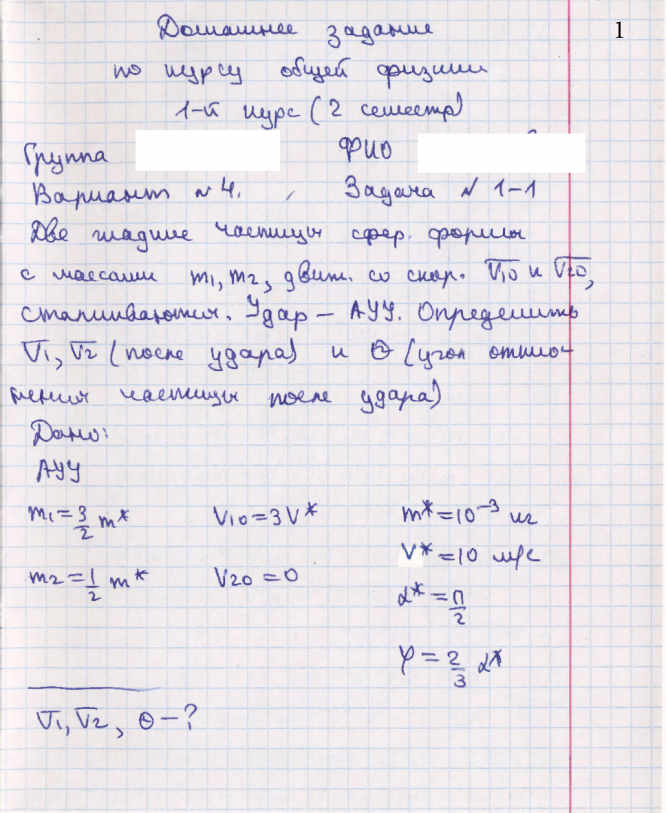 Домашнее задание 1
по курсу общей физики
1-й курс (2 семестр)
Группа ФИО
Вариант №4. Задача № 1-1
Две гладкие частицы сфер. формы
с массами m₁, m₂, движ. со скор. V̅₁₀ и V̅₂₀,
сталкиваются. Удар – АУУ. Определить
V̅₁, V̅₂ (после удара) и Θ (угол откло-
нения частицы после удара)
Дано:
АУУ
m₁ = 3/2 m* V₁₀ = 3V* m* = 10⁻³ кг
V* = 10 м/с
m₂ = 1/2 m* V₂₀ = 0
α* = П/2
φ = 2/3 α*
V̅₁, V̅₂, Θ – ?